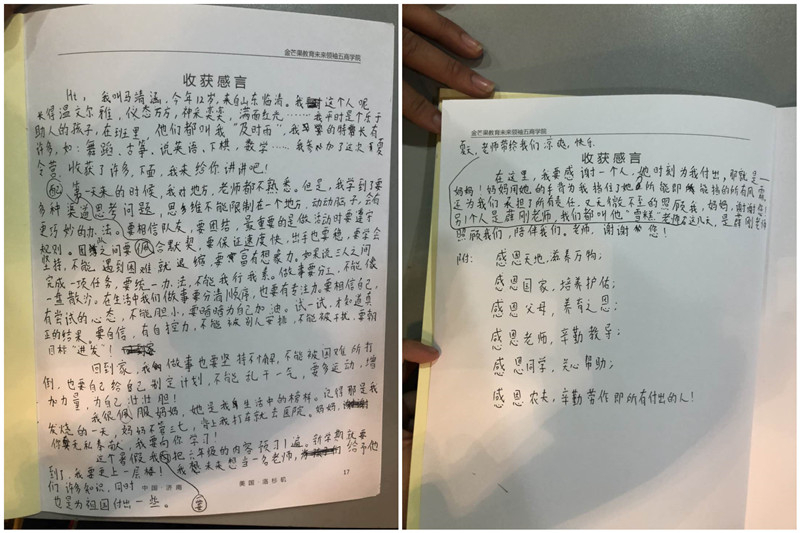 金芒果教育未来领袖五商学院
收获感言
Hi，我叫马靖涵，今年12岁，来自山东临清。我这个人呢
长得温文尔雅，仪态万方，神采奕奕，满面红光……我平时是个乐于
助人的孩子，在班里，他们都叫我"及时雨"，我的特长有
许多，如：舞蹈、古筝、说英语、下棋、数学……我参加了这次夏
令营，收获了许多，下面，我来给你讲讲吧！
第一天来的时候，我对地方，老师都不熟悉。但是，我学到了要
多种渠道思考问题，思维不能限制在一个地方，动动脑子，会有
更巧妙的办法。要相信队友，要团结，最重要的是做活动时要遵守
规则。团队之间要配合默契，要保证速度快，出手也要稳，要学会
坚持，不能遇到困难就退缩，要富有想象力。如果说三人之间
完成一项任务，要统一办法，不能我行我素。做事要分工，不能像
一盘散沙，在生活中我们做事要分清顺序，也要有专注力。要相信自己，
有尝试的心态，不能胆小，要暗暗为自己加油。试一试，才知道真
正的结果。要自信，有自控力，不能被别人安排，不能被干扰，要朝
目标"进发"！
回到家，我做事也要坚持不懈，不能被困难所打
倒，也要自己给自己制定计划，不能乱干一气，要多运动，增
加力量，为自己壮壮胆！
我很佩服妈妈，她是我生活中的榜样。记得那是我
发烧的一天，妈妈不管三七，背上我打车就去医院。妈妈，
你无私奉献，我要向你学习！
这个暑假我要把六年级的内容预习1遍。新学期就要
到了，我要更上一层楼！我想未来想当一名老师，给予他
们许多知识，同时
也是为祖国付出一些。
17
中国·济南
美国·洛杉矶
金芒果教育未来领袖五商学院
夏天，老师带给我们凉爽，快乐
收获感言
在这里，我要感谢一个人，她时刻为我付出，那就是
妈妈！妈妈用她的手臂为我挡住了她所能即能挡的所有风霜，
还为我们承担了所有责任，又无微不至的照顾我，妈妈，谢谢您！
另1个人是薛刚老师，我们都叫他"雪糕"老师，在这几天，是薛刚老师
照顾我们，陪伴我们。老师，谢谢您！
附：感恩天地，滋养万物；
感恩国家，培养护佑；
感恩父母，养育之恩；
感恩老师，辛勤教导；
感恩同学，关心帮助；
感恩农夫，辛勤劳作即所有付出的人！